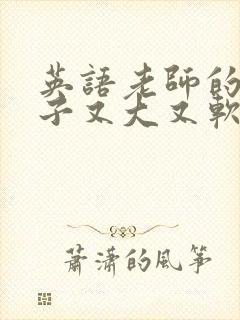 英語老師的
子又大又軟
蕭瀟的風箏